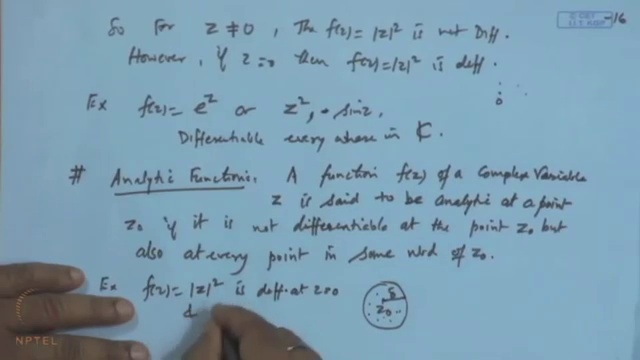 So for z ≠ 0, The f(z) = |z|² is not Diff.
However, if z = 0 then f(z) = |z|² is diff.
Ex f(z) = e^z or z², sin z,
Differentiable every where in ℂ.
# Analytic Function: A function f(z) of a Complex Variable
z is said to be analytic at a point
z₀ if it is not differentiable at the point z₀ but
also at every point in some nbd of z₀.
Ex f(z) = |z|² is diff. at z=0
d
δ
z₀
0
-16
© CET
I.I.T. KGP
NPTEL